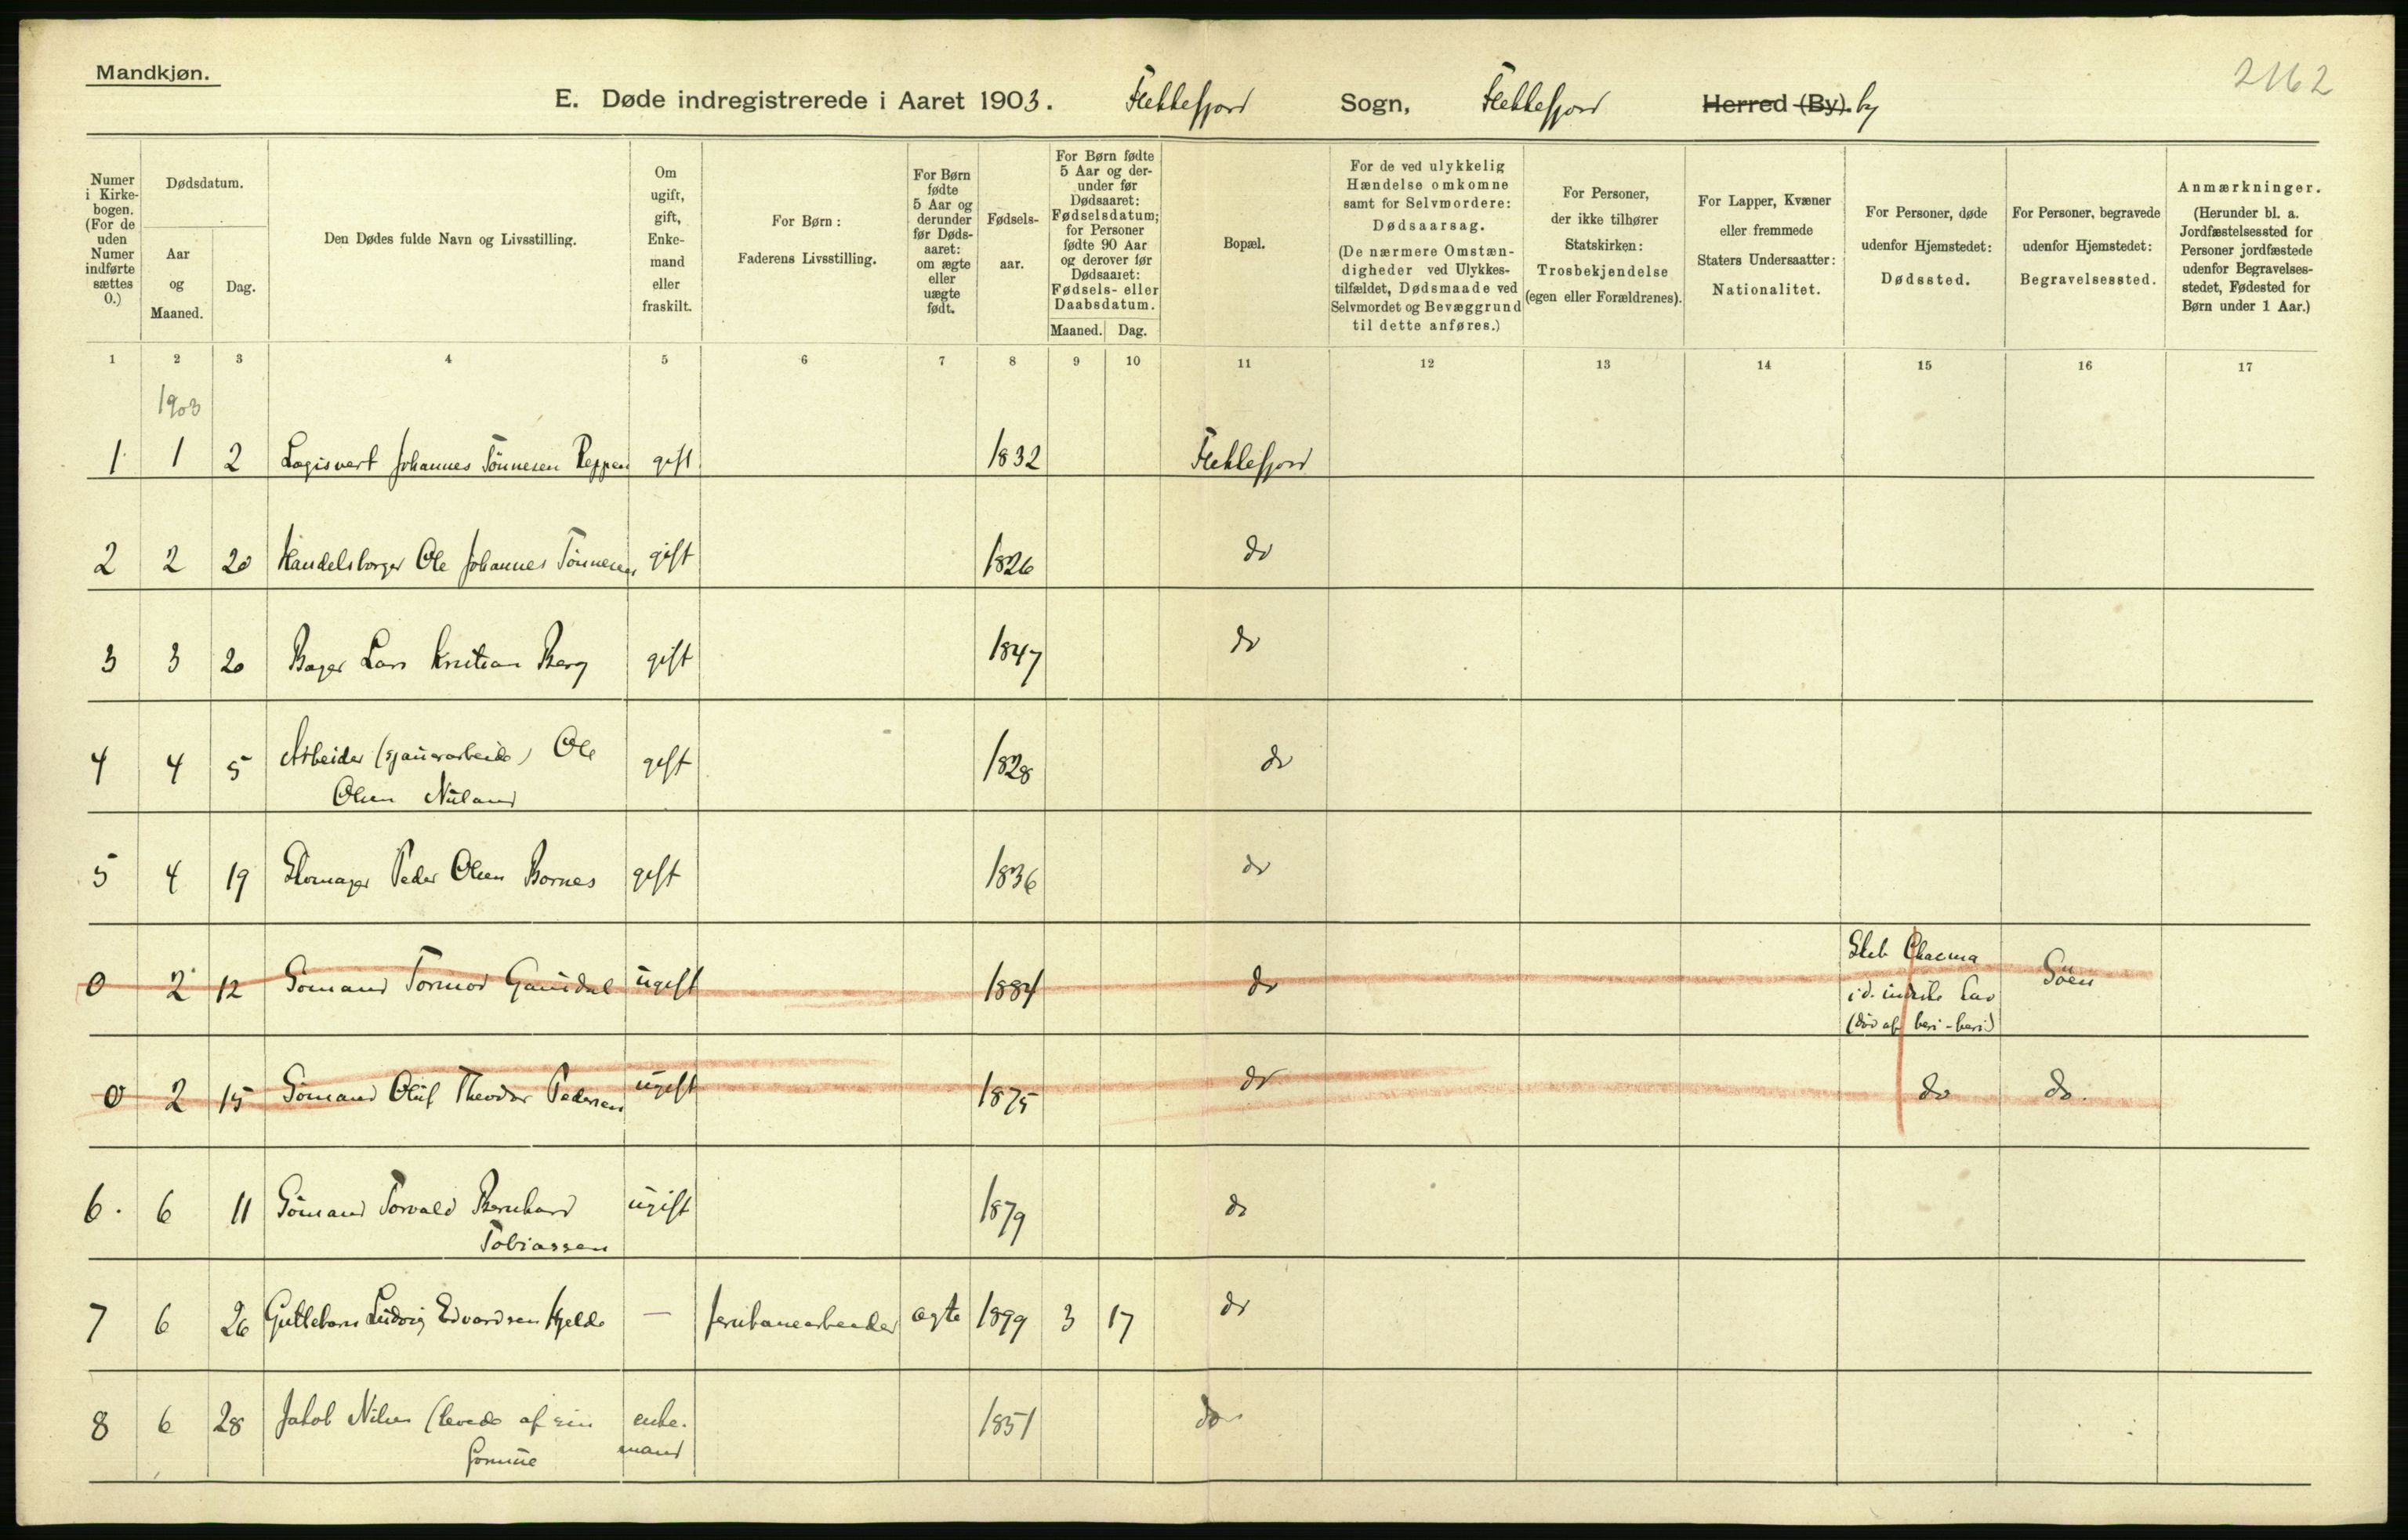 Mandkjøn.
2162
E. Døde indregistrerede i Aaret 1903. Flekkefjord Sogn, Flekkefjord Herred (By). by
Numer i Kirke-bogen. (For de uden Numer indførte sættes 0.)
Dødsdatum.
Aar og Maaned.
Dag.
Den Dødes fulde Navn og Livsstilling.
Om ugift, gift, Enke-mand eller fraskilt.
For Børn: Faderens Livsstilling.
For Børn fødte 5 Aar og derunder før Døds-aaret: om ægte eller uægte født.
Fødsels-aar.
For Børn fødte 5 Aar og der-under før Dødsaaret: Fødselsdatum; for Personer fødte 90 Aar og derover før Dødsaaret: Fødsels- eller Daabsdatum.
Maaned. Dag.
Bopæl.
For de ved ulykkelig Hændelse omkomne samt for Selvmordere: Dødsaarsag. (De nærmere Omstæn-digheder ved Ulykkes-tilfældet, Dødsmaade ved Selvmordet og Bevæggrund til dette anføres.)
For Personer, der ikke tilhører Statskirken: Trosbekjendelse (egen eller Forældrenes).
For Lapper, Kvæner eller fremmede Staters Undersaatter: Nationalitet.
For Personer, døde udenfor Hjemstedet: Dødssted.
For Personer, begravede udenfor Hjemstedet: Begravelsessted.
Anmærkninger. (Herunder bl. a. Jordfæstelsessted for Personer jordfæstede udenfor Begravelses-stedet, Fødested for Børn under 1 Aar.)
1 2 3 4 5 6 7 8 9 10 11 12 13 14 15 16 17
1903
1 1 2 Logisvert Johannes Tönnesen Reppen gift 1832 Flekkefjord
2 2 20 Handelsborger Ole Johannes Tönnesen gift 1826 do
3 3 20 Bager Lars Kristian Berg gift 1847 do
4 4 5 Arbeider (sjauerarbeide) Ole gift 1828 do
Olsen Nuland
5 4 19 Skomager Peder Olsen Bornes gift 1836 do
0 2 12 Sömand Tormod ugift 1884 do Skib i d. indiske hav (död af beri-beri) Söen
0 2 15 Sömand Oluf Theodor Pedersen ugift 1875 do do do.
6. 6 11 Sömand Torvald Bernhard ugift 1879 do
Tobiassen
7 6 26 Guttebarn Ludvig Edvardsen Kjelde — jernbanearbeider ægte 1899 3 17 do
8 6 28 Jakob Nilsen (levede af sin enke- 1851 do
formue mand